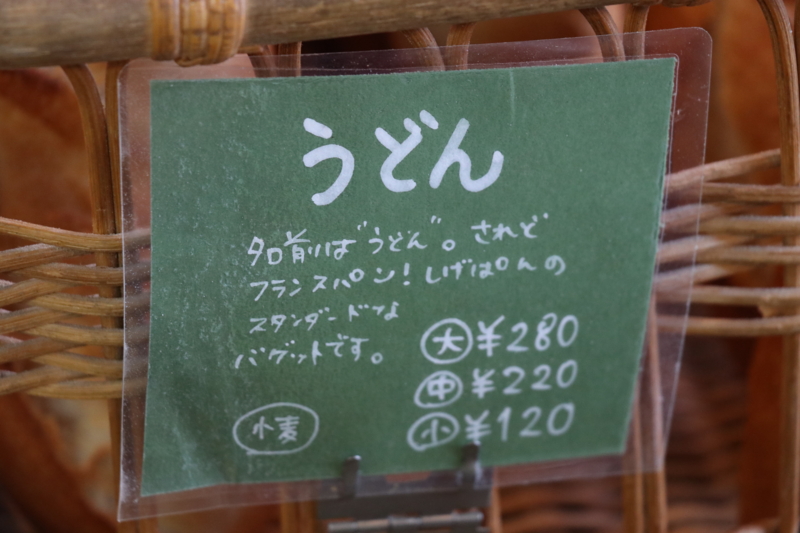 うどん
名前は"うどん"。されど
フランスパン!しげぱんの
スタンダードな
バゲットです。
大 ¥280
中 ¥220
小 ¥120
小麦